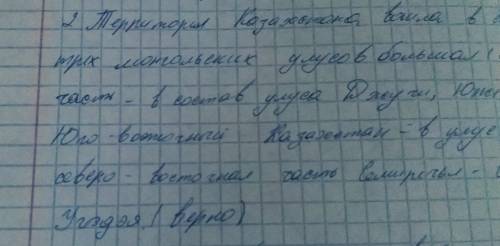 2 Территория Казахстана вошла в
трех монгольских улусов большая
часть - в состав улуса Джучи, Южн
Юго-восточный Казахстан - в улус
северо-восточная часть Семиречья -
Угэдэя. (верно)